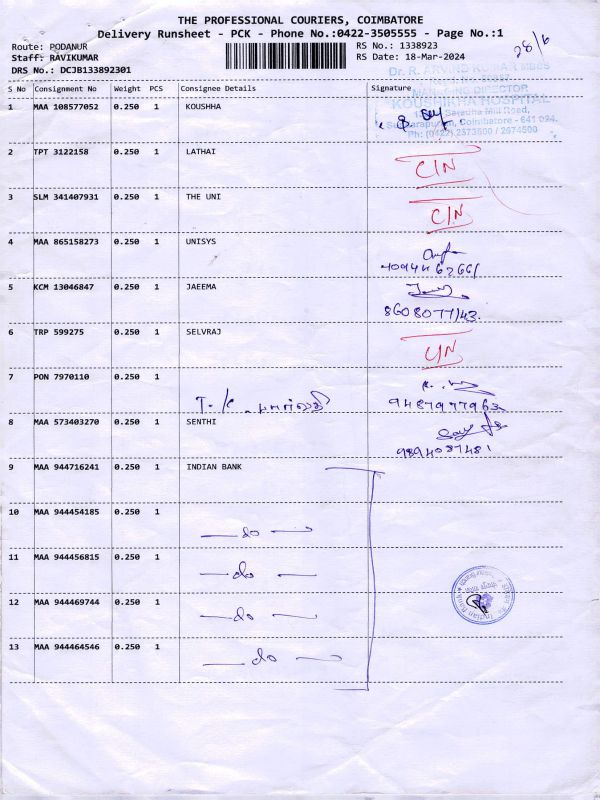 THE PROFESSIONAL COURIERS, COIMBATORE
Delivery Runsheet - PCK - Phone No.:0422-3505555 - Page No.:1
28/6
Route: PODANUR
RS No.: 1338923
Staff: RAVIKUMAR
RS Date: 18-Mar-2024
DRS No.: DCJB133892301
MANAGING DIRECTOR
KOUSHIKHA HOSPITAL
Coimbatore - 641 024.
Ph: (0422) 2673500 / 2674500
S No Consignment No Weight PCS Consignee Details Signature
1 MAA 108577052 0.250 1 KOUSHHA
2 TPT 3122158 0.250 1 LATHAI
C/N
3 SLM 341407931 0.250 1 THE UNI
C/N
4 MAA 865158273 0.250 1 UNISYS
5 KCM 13046847 0.250 1 JAEEMA
8608077143.
6 TRP 599275 0.250 1 SELVRAJ
C/N
7 PON 7970110 0.250 1
T. K.
8 MAA 573403270 0.250 1 SENTHI
9894087481
9 MAA 944716241 0.250 1 INDIAN BANK
10 MAA 944454185 0.250 1
— do —
11 MAA 944456815 0.250 1
— do —
12 MAA 944469744 0.250 1
— do —
13 MAA 944464546 0.250 1
— do —
Indian Bank